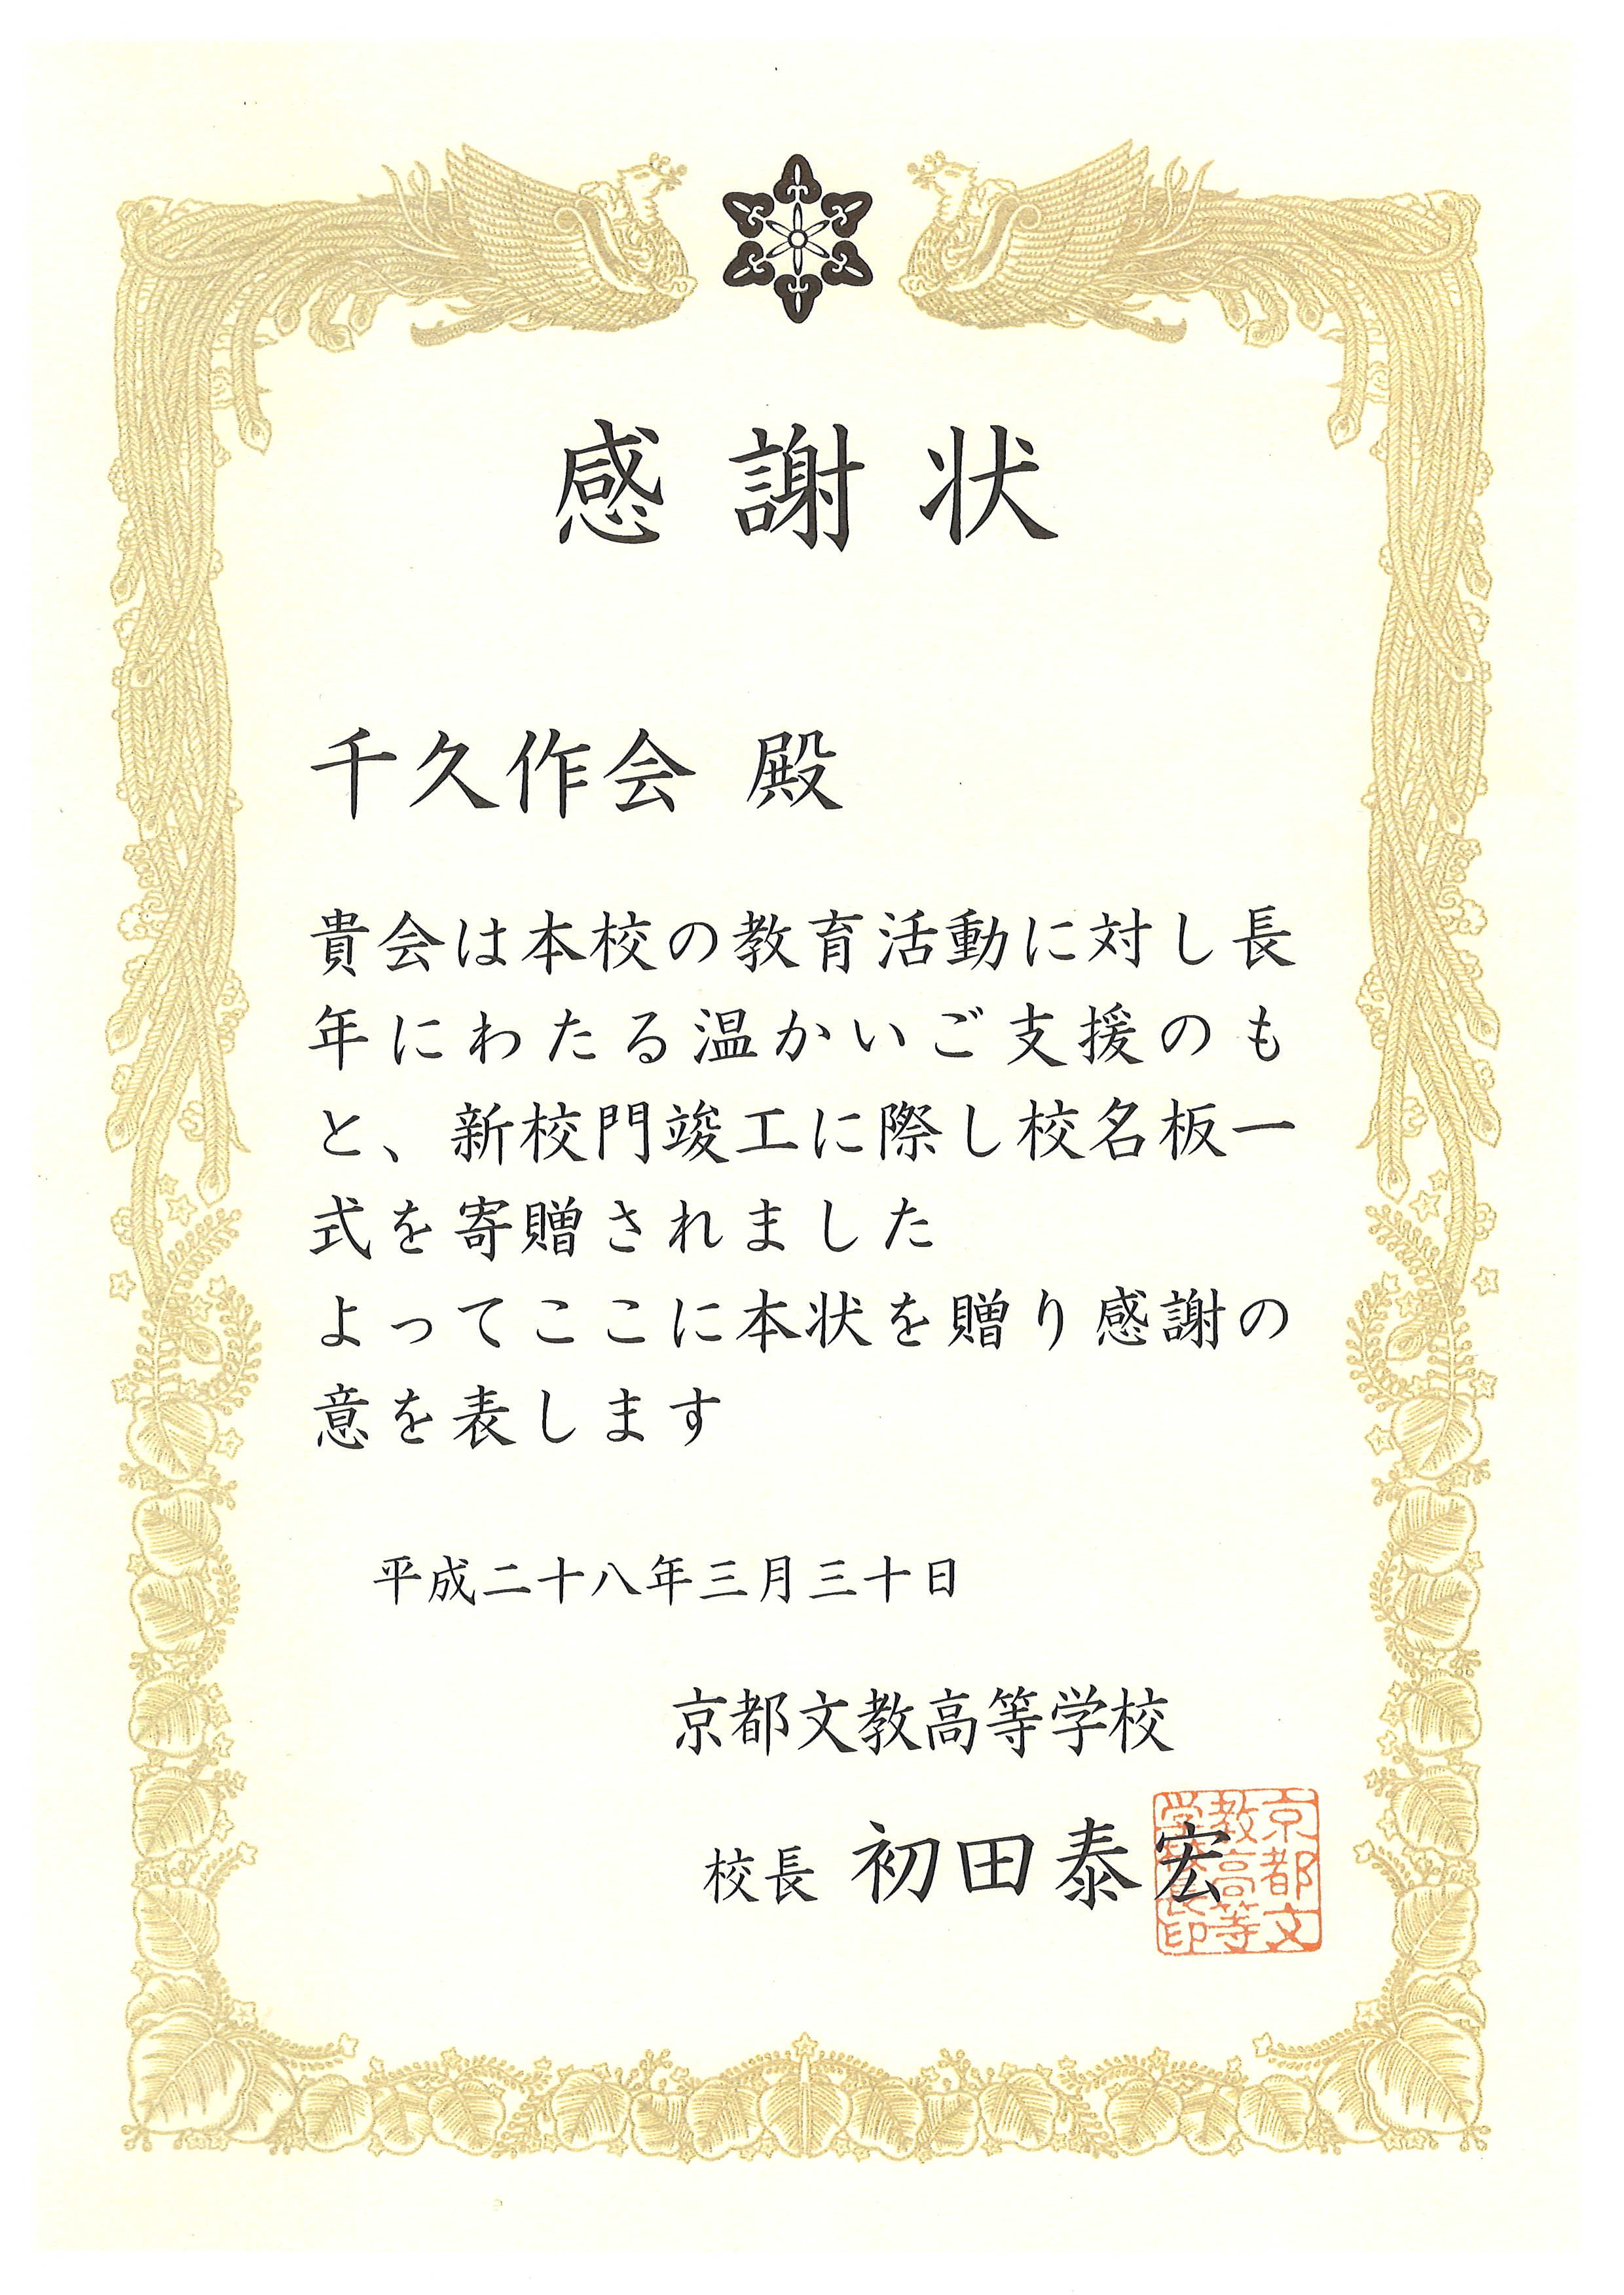 感謝状
千久作会 殿
貴会は本校の教育活動に対し長
年にわたる温かいご支援のも
と、新校門竣工に際し校名板一
式を寄贈されました
よってここに本状を贈り感謝の
意を表します
平成二十八年三月三十日
京都文教高等学校
校長 初田泰宏
京都文
教高等
学校長印